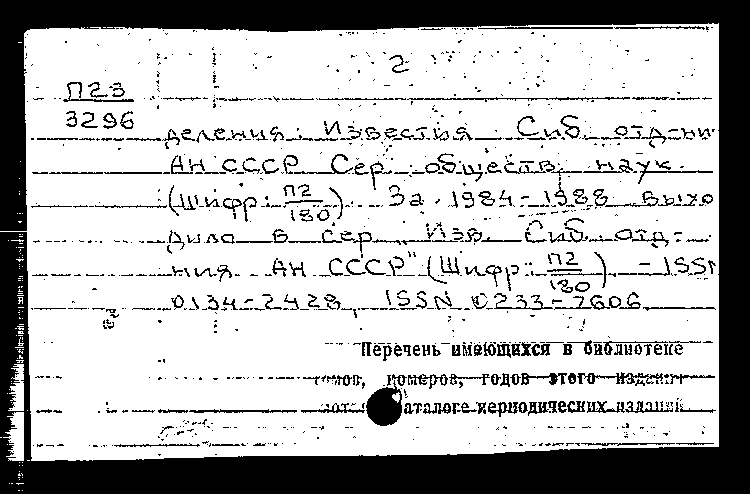 2
П23
3296
деления: Известия Сиб. отд-ни
АН СССР. Сер. обществ. наук.
(Шифр: П2/180). За 1984-1988 выхо
дило в сер. "Изв. Сиб. отд-
ния АН СССР" (Шифр: П2/180). - ISSN
0134-2428, ISSN 0233-7606.
Перечень имеющихся в библиотеке
томов, номеров, годов этого издания
каталоге периодических изданий